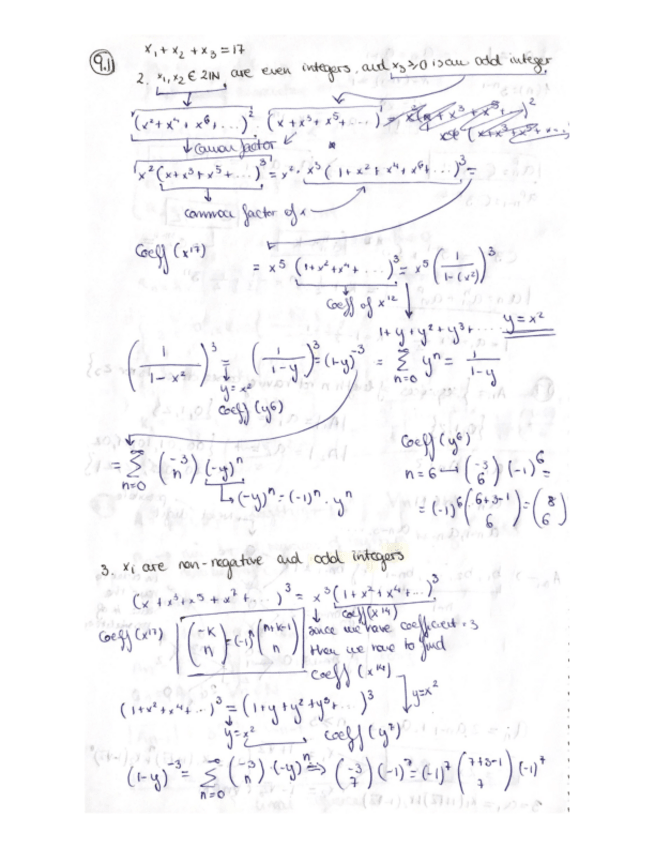 9.1
x₁ + x₂ + x₃ = 17
2. x₁, x₂ ∈ 2ℕ are even integers, and x₃ ≥ 0 is an odd integer
(x² + x⁴ + x⁶ + ...)² · (x + x³ + x⁵ + ...)
common factor
x² (x + x³ + x⁵ + ...)³ = x² · x³ (1 + x² + x⁴ + x⁶ + ...)³ =
common factor of x
Coeff (x¹⁷)
= x⁵ (1 + x² + x⁴ + ...)³ = x⁵ (1/(1-(x²)))³
Coeff of x¹²
1 + y + y² + y³ + ... y = x²
(1/(1-x²))³ = (1/(1-y))³ = (1-y)⁻³ = ∑ n=0 yⁿ = 1/(1-y)
y = x²
Coeff (y⁶)
Coeff (y⁶)
= ∑ n=0 (-3 n) (-y)ⁿ
n = 6 → (-3 6) (-1)⁶ =
(-y)ⁿ = (-1)ⁿ · yⁿ
= (-1)⁶ (6+3-1 6) = (8 6)
3. xi are non-negative and odd integers
(x + x³ + x⁵ + x⁷ + ...)³ = x³ (1 + x² + x⁴ + ...)³
coeff (x¹⁴)
Coeff (x¹⁷) (-k n) = (-1)ⁿ (n+k-1 n) since we have coefficient = 3
then we have to find
Coeff (x¹⁴)
y = x²
(1 + x² + x⁴ + ...)³ = (1 + y + y² + y³ + ...)³
y = x² coeff (y⁷)
(1-y)⁻³ = ∑ n=0 ∞ (-3 n) · (-y)ⁿ ⇒ (-3 7) (-1)⁷ = (-1)⁷ (7+3-1 7) (-1)⁷